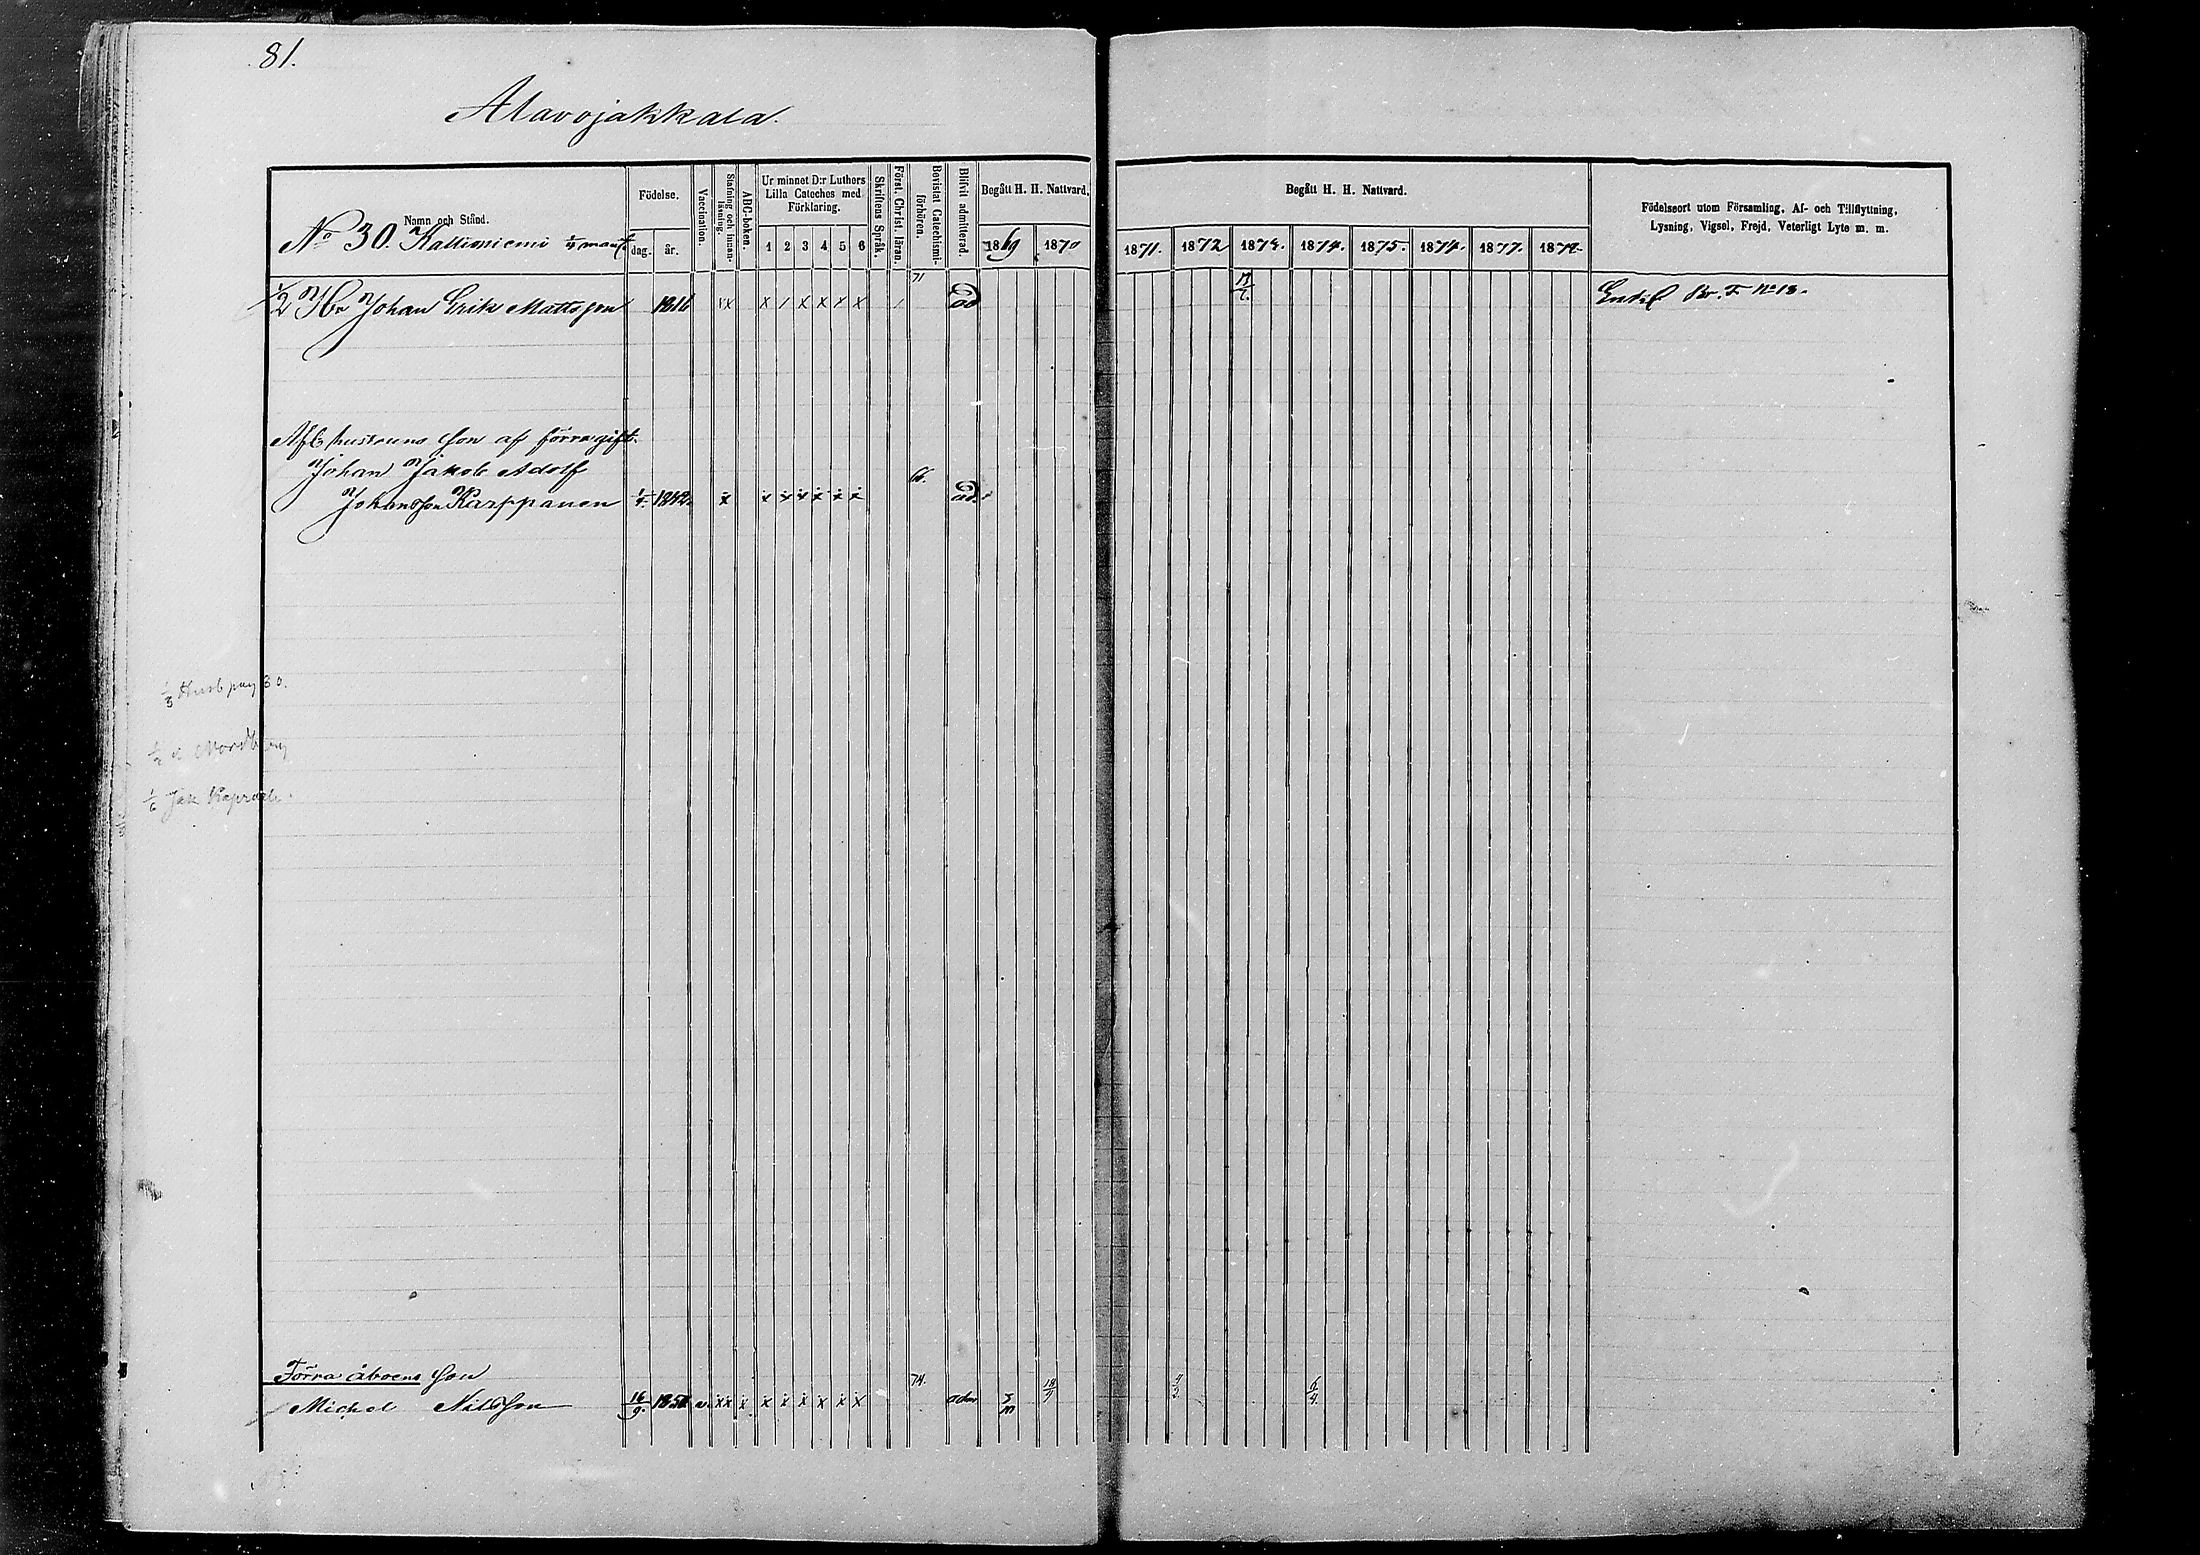 81.
Alavojakkala.
Namn och Stånd.
No 30. Kallioniemi 1/4 mant.
Födelse.
dag. år.
Vaccination.
Stafning och innan-läsning.
ABC-boken.
Ur minnet D:r Luthers Lilla Cateches med Förklaring.
1 2 3 4 5 6
Skriftens Språk.
Först. Christ. läran.
Bevistat Catechismi-förhören.
Blifvit admitterad.
Begått H. H. Nattvard.
1869 1870
Begått H. H. Nattvard.
1871. 1872 1873. 1874. 1875. 1874. 1877. 1878.
Födelseort utom Församling, Af- och Tillflyttning,
Lysning, Vigsel, Frejd, Veterligt Lyte m. m.
71
1/2 Johan Erik Mattsson 1816 xx x / x x x x / ad
Br. F. No 18.
Afl hustruns son af förra gift.
Johan Jakob Adolf
66.
Johansson Karppanen 1/4 1842. x x x x x x x ad.
1/3 30.
1/2
1/6 Jak
Förra åboens son
74.
Michel Nilsson 16/9. v. xx x x x x x x x adm 18/7 6/4.